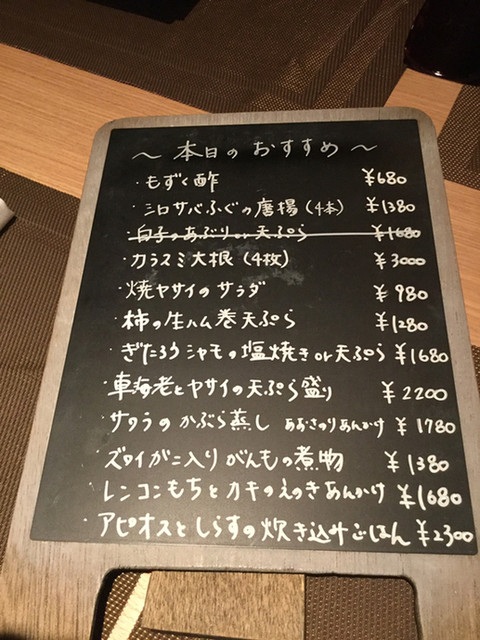 ～本日のおすすめ～
・もずく酢 ¥680
・シロサバふぐの唐揚(4本) ¥1380
・白子のあぶりor天ぷら ¥1680
・カラスミ大根(4枚) ¥3000
・焼ヤサイのサラダ ¥980
・柿の生ハム巻天ぷら ¥1280
・ぎたろうシャモの塩焼きor天ぷら ¥1680
・車海老とヤサイの天ぷら盛り ¥2200
・サワラのかぶら蒸し あおさのりあんかけ ¥1780
・ズワイガニ入りがんもの煮物 ¥1380
・レンコンもちとカキのえのきあんかけ ¥1680
・アピオスとしらすの炊き込みごはん ¥2300